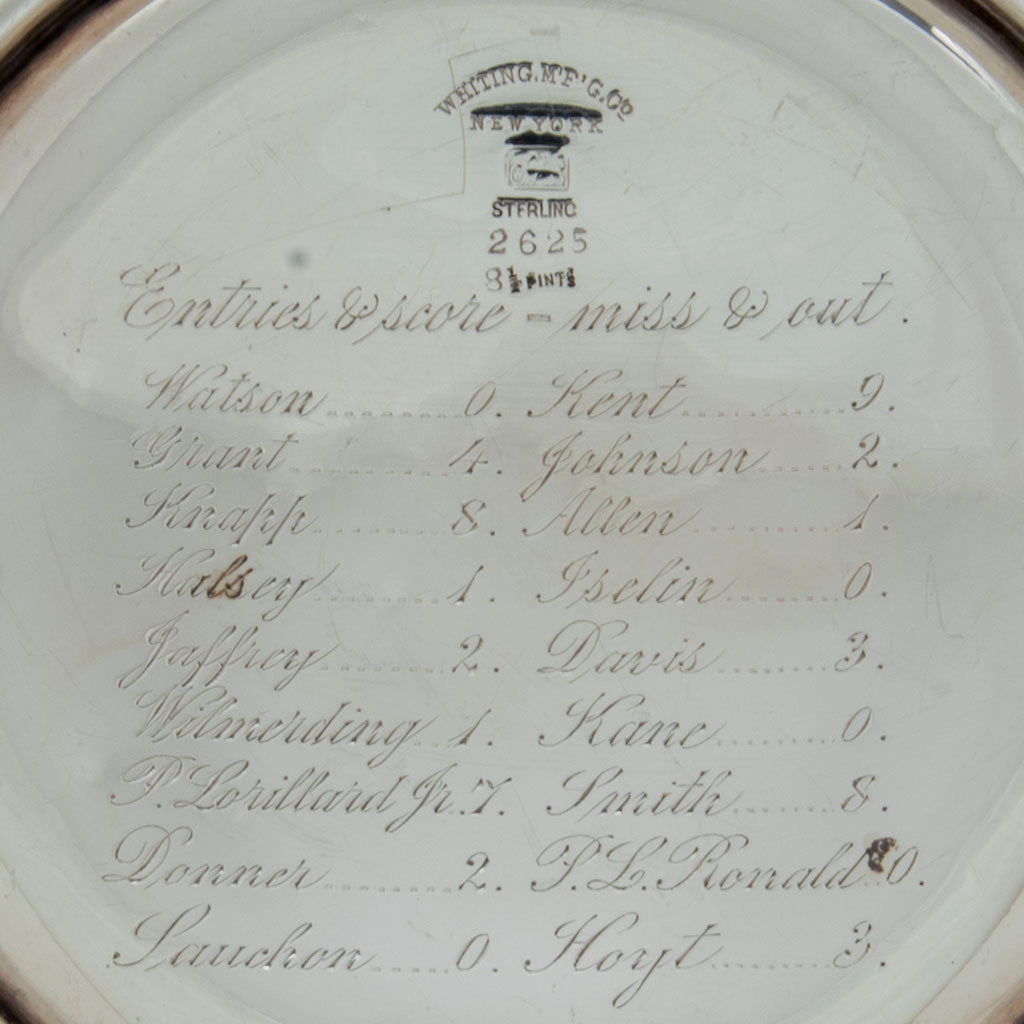 WHITING.M'F'G.Co
NEW YORK
STERLING
2625
8½ PINTS
Entries & score - miss & out.
Watson........0. Kent............9.
Grant..........4. Johnson......2.
Knapp........8. Allen...........1.
Halsey.........1. Iselin.........0.
Jaffrey.........2. Davis.......3.
Wilmerding..1. Kane........0.
P. Lorillard Jr.7. Smith.......8.
Donner........2. P. L. Ronald 0.
Lauchon.....0. Hoyt........3.